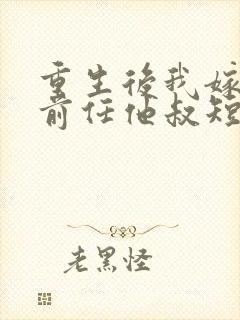 重生後我嫁
前任他叔短
老黑怪